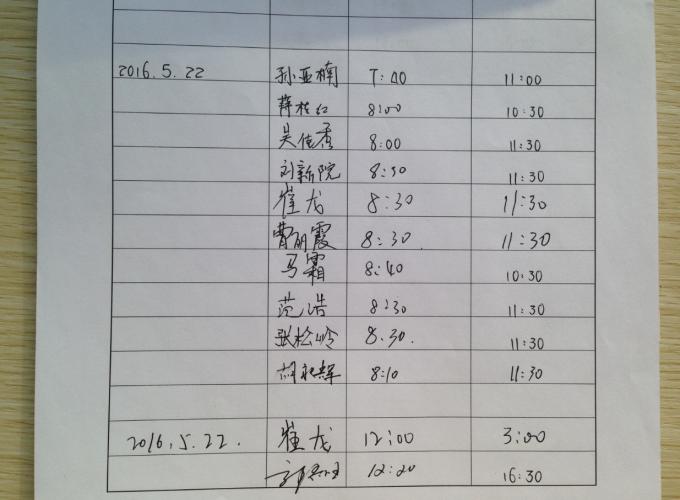 2016.5.22 孙亚楠 7:40 11:00
薛桂红 8:00 10:30
吴佳秀 8:00 11:30
刘新院 8:30 11:30
崔龙 8:30 11:30
曹丽霞 8:30 11:30
马霜 8:40 10:30
范浩 8:30 11:30
张松岭 8.30. 11:30
胡 辉 8:10 11:30
2016.5.22. 崔龙 12:00 3:00
12:20 16:30